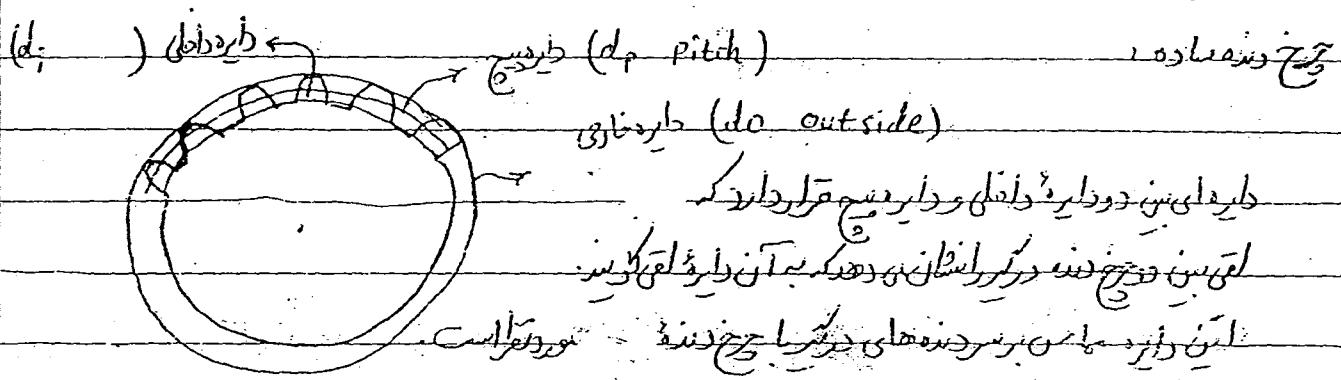 چرخ دنده ساده :
دایره پیچ (dp pitch)
دایره داخلی (di )
دایره خارجی (do outside)
دایره ای بین دو دایرهٔ داخلی و دایره پیچ قرار دارد که
لقی بین دو چرخ دنده درگیر را نشان می دهد که به آن دایرهٔ لقی گویند.
این دایره مماس بر سر دنده های درگیر با چرخ دندهٔ مورد نظر است.